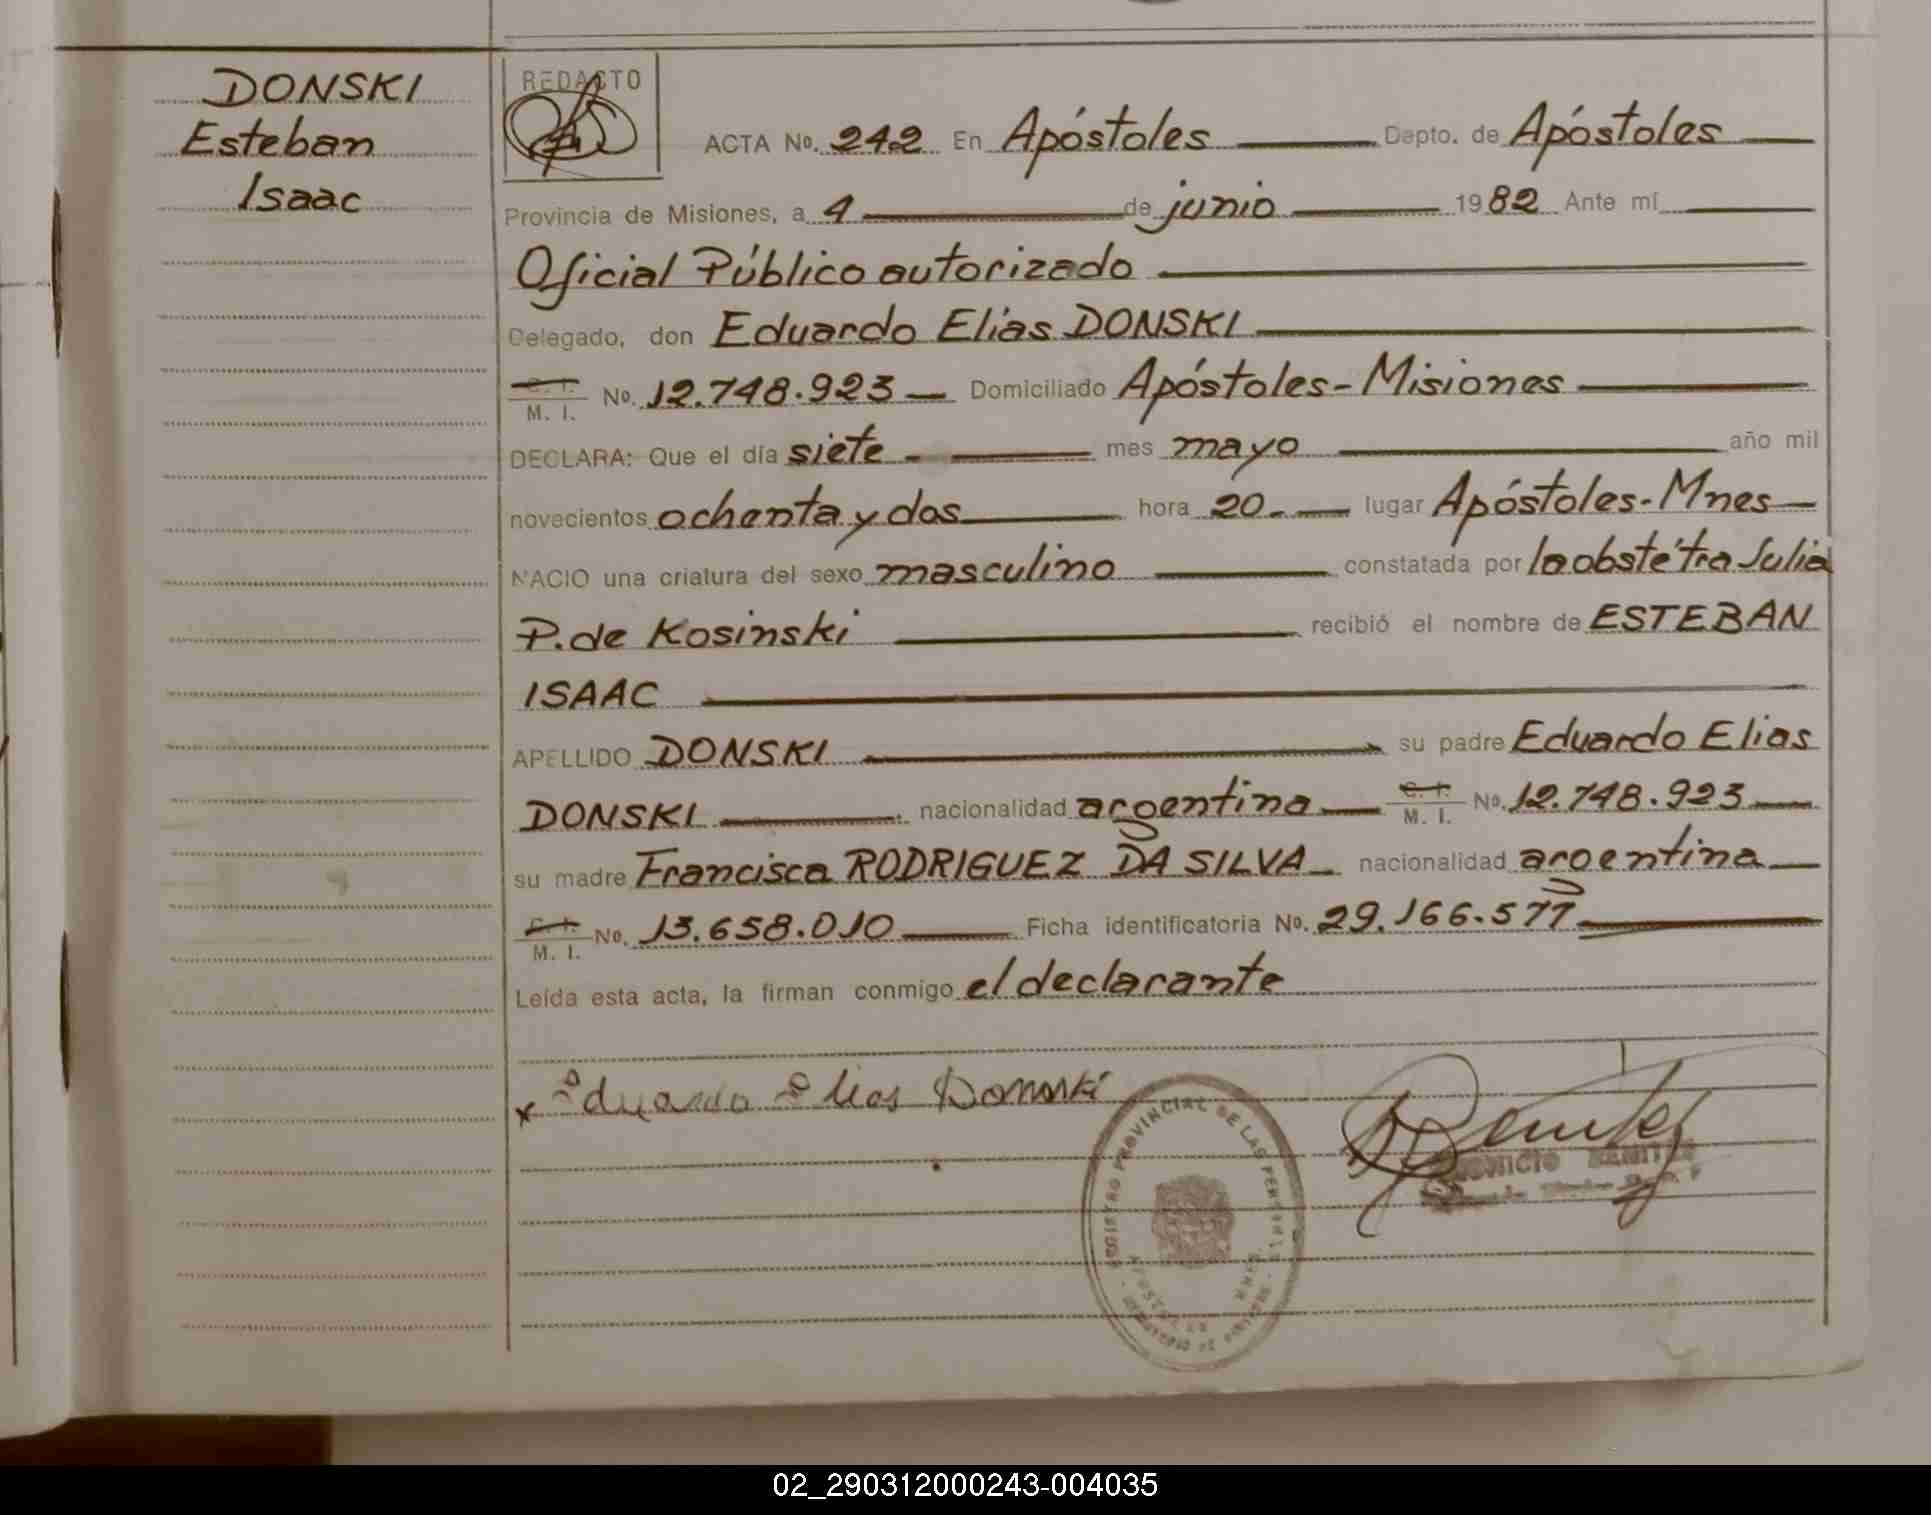 DONSKI
Esteban
Isaac
REDACTO
ACTA No. 242 En Apóstoles Depto. de Apóstoles
Provincia de Misiones, a 4 de junio 1982 Ante mí
Oficial Público autorizado
Delegado, don Eduardo Elias DONSKI
C. I. M. I. No. 12.748.923 Domiciliado Apóstoles - Misiones
DECLARA: Que el día siete mes mayo año mil
novecientos ochenta y dos hora 20.- lugar Apóstoles - Mnes
NACIO una criatura del sexo masculino constatada por la obstétra Julia
P. de Kosinski recibió el nombre de ESTEBAN
ISAAC
APELLIDO DONSKI su padre Eduardo Elias
DONSKI nacionalidad argentina C. I. M. I. No. 12.748.923
su madre Francisca RODRIGUEZ DA SILVA nacionalidad argentina
C. I. M. I. No. 13.658.010 Ficha identificatoria No. 29.166.577
Leída esta acta, la firman conmigo el declarante
x Eduardo Elias Donski
REGISTRO PROVINCIAL DE LAS PERSONAS
APOSTOLES
02_290312000243-004035